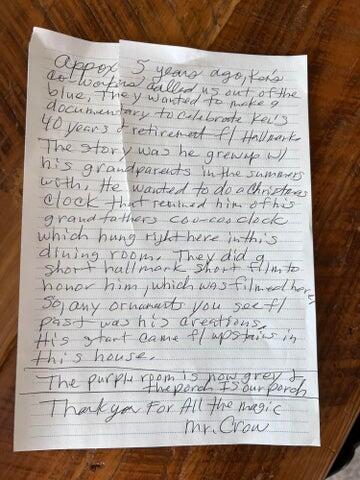 Appox 5 years ago, Ken's
co-workins called us out of the
blue, They wanted to make a
documentary to celebrate Kev's
40 years & retirement f/ Hallmark
The story was he grewup w/
his grandparents in the summers
with. He wanted to do a Christmas
clock that remined him of his
grandfathers coo-coo clock
which hung right here in this
dining room. They did a
short hallmark short film to
honor him, which was filmed here,
So, any ornaments you see f/
past was his creations.
His start came f/ upstairs in
this house.
The purple room is now grey &
the porch Is our porch
Thank you For All the magic
Mr. Crow